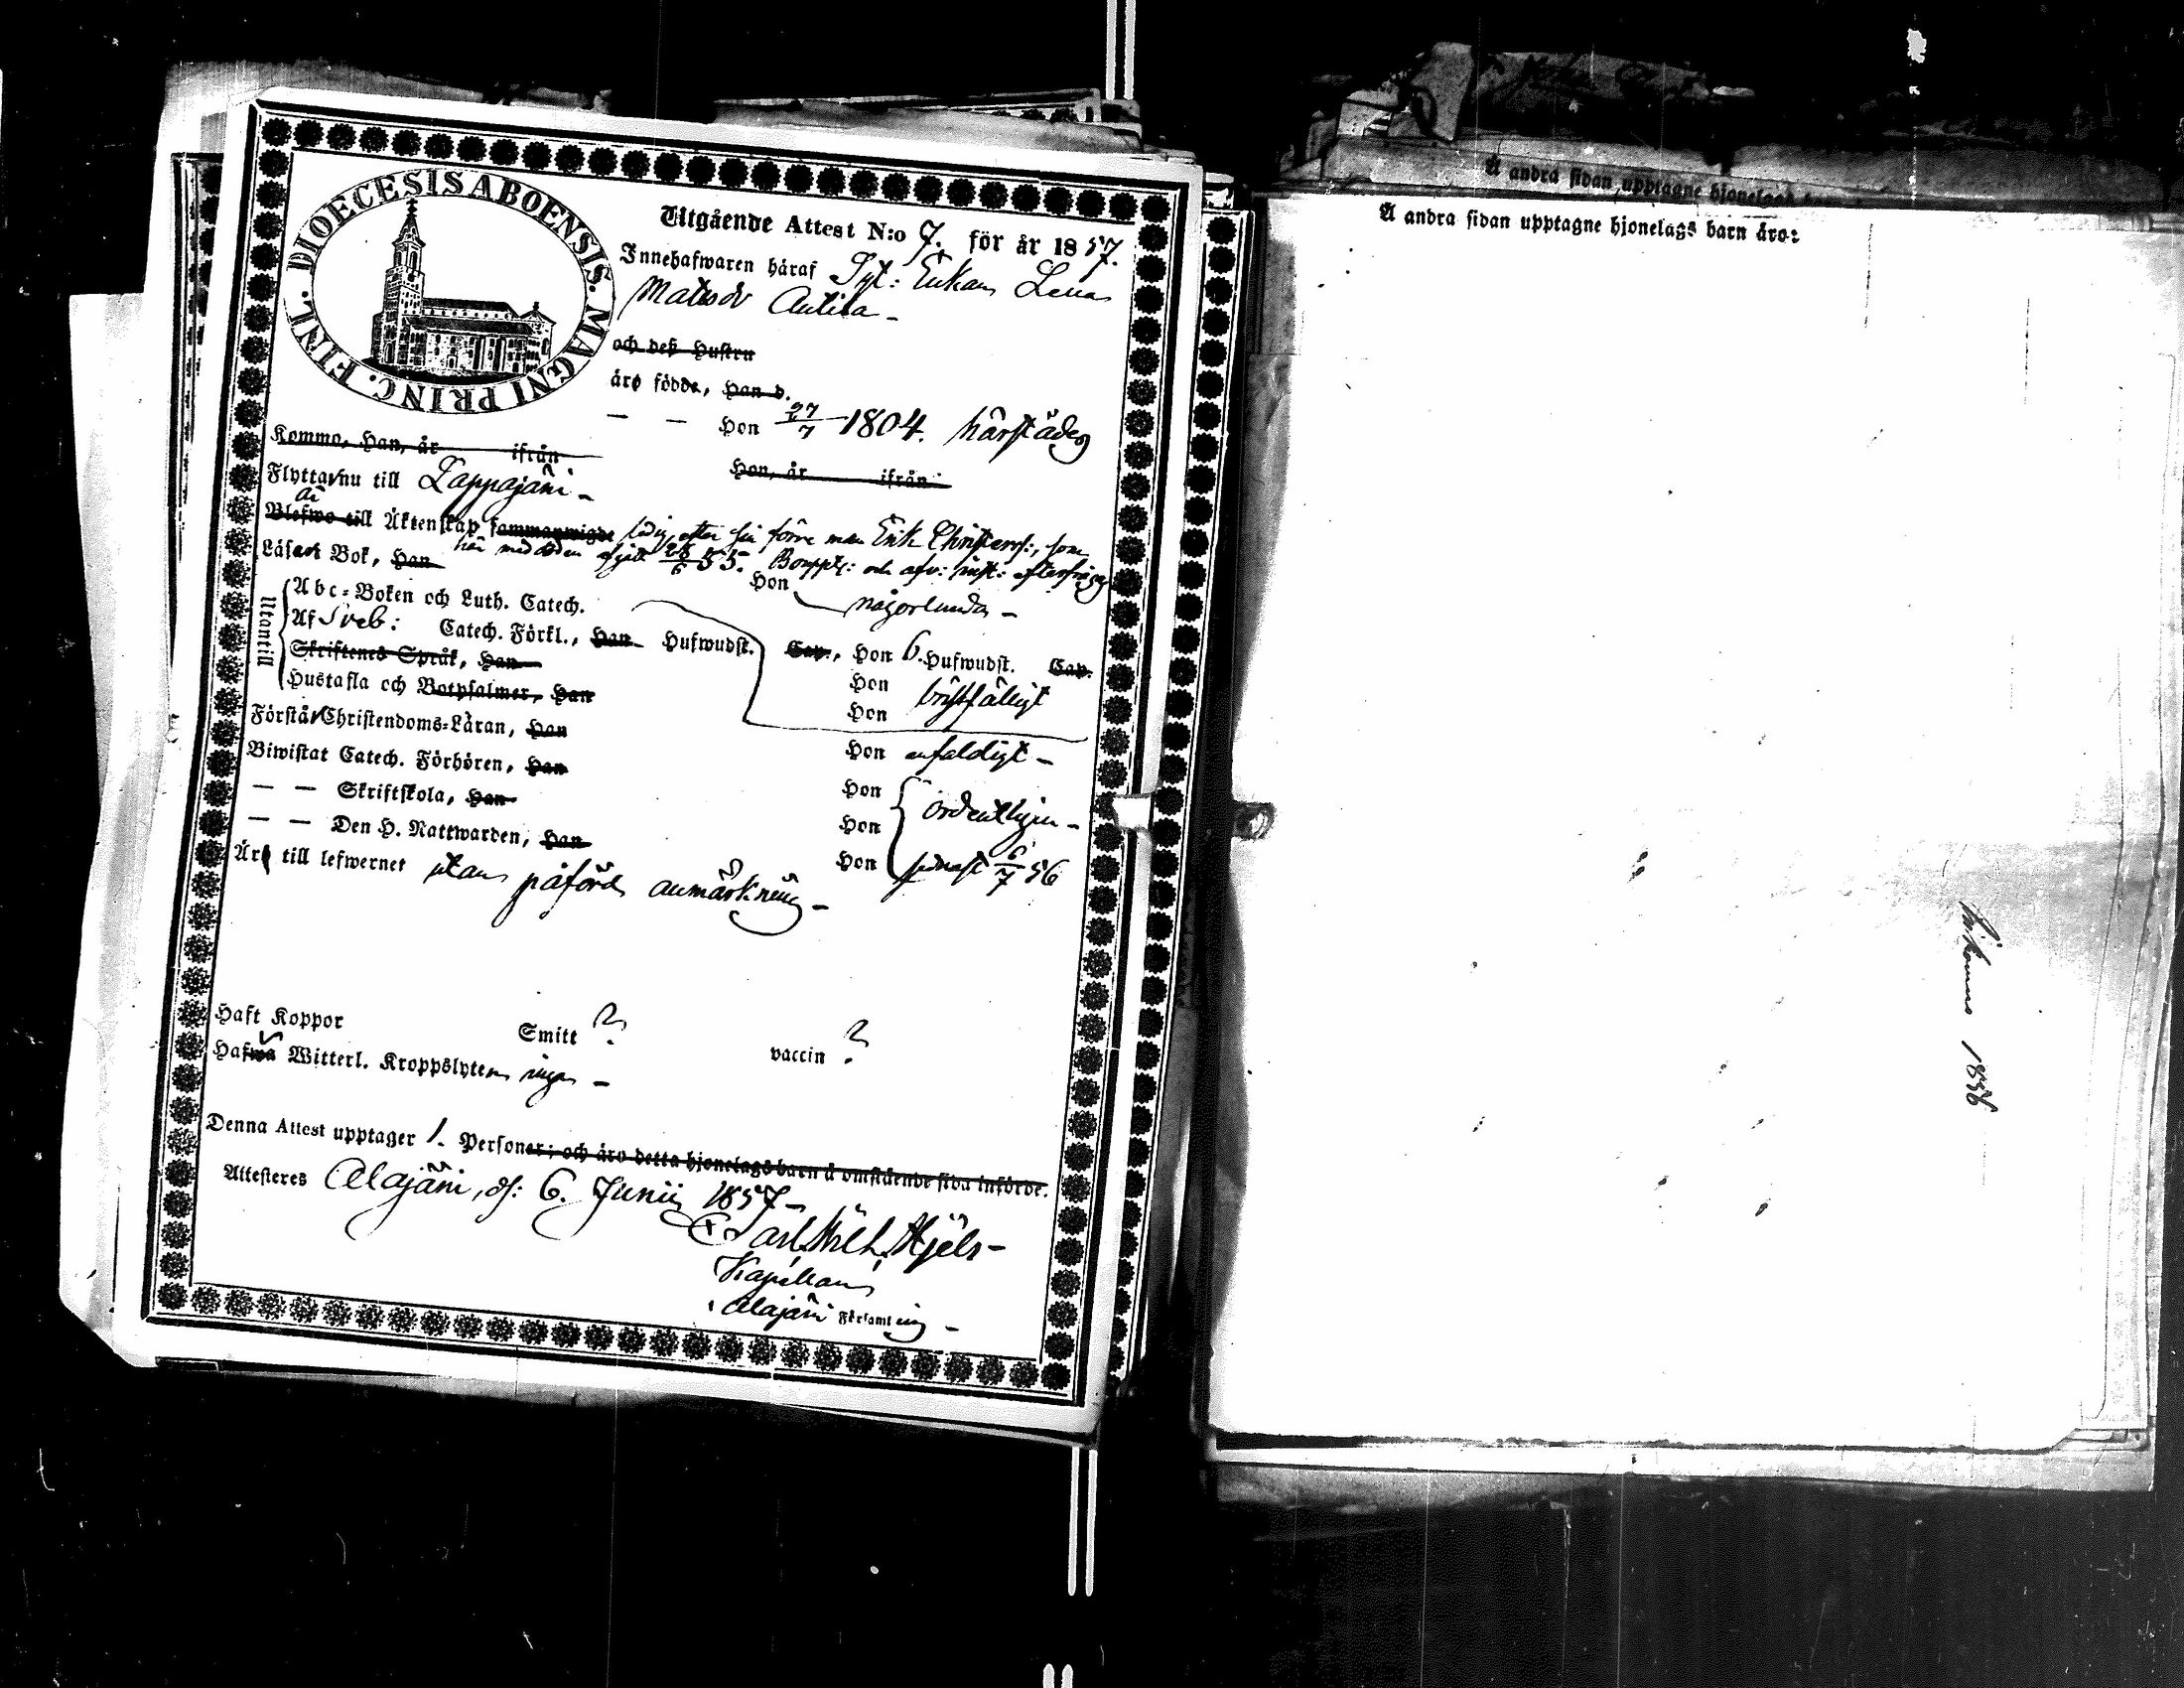 DIOECESIS ABOENSIS. MAGNI PRINC. FINL.
Utgående Attest N:o 7. för år 1857.
Innehafwaren häraf Syt: Enkan Lena
Matsdr Antila -
och deß Hustru
äro födde, Han d.
— — Hon 27/7 1804. härstädes
Kommo, Han, år ifrån
Hon, år ifrån
Flyttar nu till Lappajärvi -
Blefwo till Äktenskap sammanwigde ledig efter sin förre man Erik Christerss:, som
här med döden afgått 28/6 55. Bouppt: och afv: inst: efterfrågas
Läser i Bok, Han Hon någorlunda -
Utantill
Abc-Boken och Luth. Catech.
Af Sveb: Catech. Förkl., Han Hufwudst. Cap., Hon 6. Hufwudst. Cap.
Skriftenes Språk, Han Hon bristfälligt
Hustafla och Botpsalmer, Han Hon
Förstår Christendoms-Läran, Han Hon enfaldigt -
Biwistat Catech. Förhören, Han Hon
— — Skriftskola, Han Hon ordentligen -
— — Den H. Nattwarden, Han Hon senast 6/7 56
Äro till lefwernet utan påförd anmärkning -
Haft Koppor Smitt ? vaccin ?
Hafwa Witterl. Kroppslyten inga -
Denna Attest upptager 1. Personer; och äro detta hjonelags barn å omstående sida införde.
Attesteres Alajärvi, d: 6. Junii 1857 -
Carl Wilh. Hjelt -
Kapellan
i Alajärvi Församling -
Å andra sidan upptagne hjonelags
Å andra sidan upptagne hjonelags barn äro:
1856